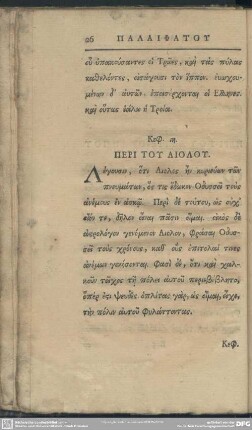 26 ΠΑΛΑΙΦΑΤΟΥ
οὐ ὑπακούσαντες οἱ Τρῶες, καὶ τὰς πύλας
καθελόντες, εἰσάγουσι τὸν ἵππον. εὐωχου-
μένων δ' αὐτῶν ἐπεισέρχονται οἱ Ἕλληνες.
καὶ οὕτως ἑάλω ἡ Τροία.
Κεφ. ιη.
ΠΕΡΙ ΤΟΥ ΑΙΟΛΟΥ.
Λέγουσιν, ὅτι Αἴολος ἦν κυριεύων τῶν
πνευμάτων, ὅς τις ἔδωκεν Ὀδυσσεῖ τοὺς
ἀνέμους ἐν ἀσκῷ. Περὶ δὲ τούτου, ὡς οὐχ'
οἷόν τε, δῆλον εἶναι πᾶσιν οἶμαι. εἰκὸς δὲ
ἀστρολόγον γενόμενον Αἴολον, φράσαι Ὀδυσ-
σεῖ τοὺς χρόνους, καθ' οὓς ἐπιτολαί τινες
ἀνέμων γενήσονται. φασὶ δὲ, ὅτι καὶ χαλ-
κοῦν τεῖχος τῇ πόλει αὐτοῦ περιεβέβλητο,
ὅπερ ἐστὶ ψευδές. ὁπλίτας γὰρ, ὡς οἶμαι, εἶχε,
τὴν πόλιν αὐτοῦ φυλάττοντας.
Κεφ.